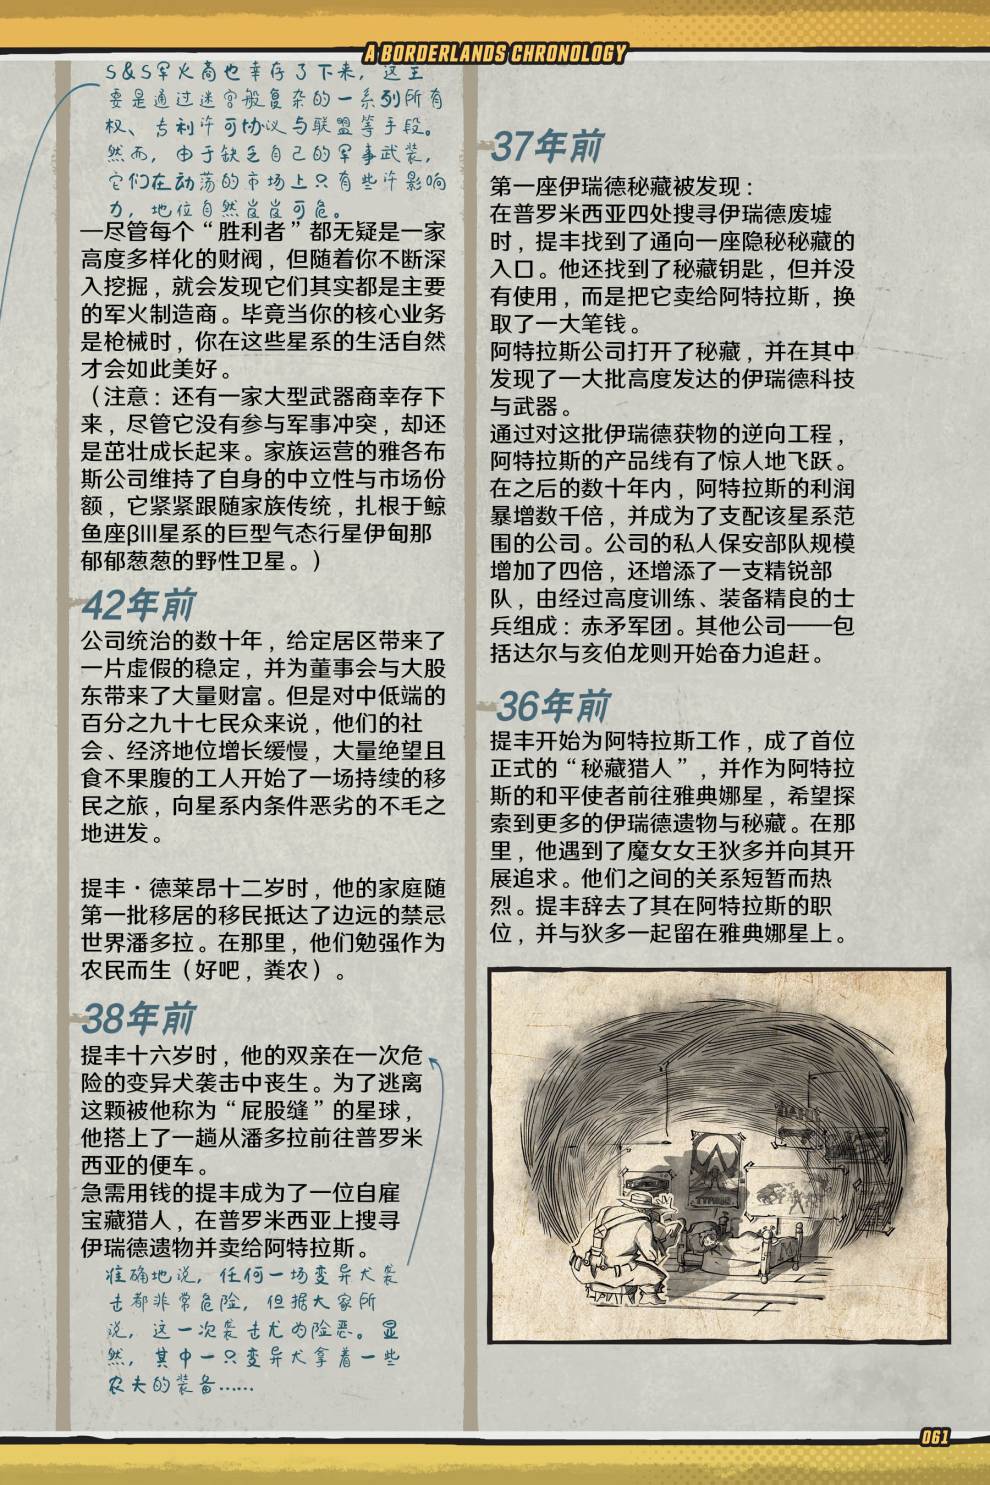 A BORDERLANDS CHRONOLOGY
S&S军火商也幸存了下来，这主
要是通过迷宫般复杂的一系列所有
权、专利许可协议与联盟等手段。
然而，由于缺乏自己的军事武装，
它们在动荡的市场上只有些许影响
力，地位自然岌岌可危。
—尽管每个“胜利者”都无疑是一家
高度多样化的财阀，但随着你不断深
入挖掘，就会发现它们其实都是主要
的军火制造商。毕竟当你的核心业务
是枪械时，你在这些星系的生活自然
才会如此美好。
（注意：还有一家大型武器商幸存下
来，尽管它没有参与军事冲突，却还
是茁壮成长起来。家族运营的雅各布
斯公司维持了自身的中立性与市场份
额，它紧紧跟随家族传统，扎根于鲸
鱼座βIII星系的巨型气态行星伊甸那
郁郁葱葱的野性卫星。）
42年前
公司统治的数十年，给定居区带来了
一片虚假的稳定，并为董事会与大股
东带来了大量财富。但是对中低端的
百分之九十七民众来说，他们的社
会、经济地位增长缓慢，大量绝望且
食不果腹的工人开始了一场持续的移
民之旅，向星系内条件恶劣的不毛之
地进发。
提丰·德莱昂十二岁时，他的家庭随
第一批移居的移民抵达了边远的禁忌
世界潘多拉。在那里，他们勉强作为
农民而生（好吧，粪农）。
38年前
提丰十六岁时，他的双亲在一次危
险的变异犬袭击中丧生。为了逃离
这颗被他称为“屁股缝”的星球，
他搭上了一趟从潘多拉前往普罗米
西亚的便车。
急需用钱的提丰成为了一位自雇
宝藏猎人，在普罗米西亚上搜寻
伊瑞德遗物并卖给阿特拉斯。
准确地说，任何一场变异犬袭
击都非常危险，但据大家所
说，这一次袭击尤为险恶。显
然，其中一只变异犬拿着一些
农夫的装备……
37年前
第一座伊瑞德秘藏被发现：
在普罗米西亚四处搜寻伊瑞德废墟
时，提丰找到了通向一座隐秘秘藏的
入口。他还找到了秘藏钥匙，但并没
有使用，而是把它卖给阿特拉斯，换
取了一大笔钱。
阿特拉斯公司打开了秘藏，并在其中
发现了一大批高度发达的伊瑞德科技
与武器。
通过对这批伊瑞德获物的逆向工程，
阿特拉斯的产品线有了惊人地飞跃。
在之后的数十年内，阿特拉斯的利润
暴增数千倍，并成为了支配该星系范
围的公司。公司的私人保安部队规模
增加了四倍，还增添了一支精锐部
队，由经过高度训练、装备精良的士
兵组成：赤矛军团。其他公司——包
括达尔与亥伯龙则开始奋力追赶。
36年前
提丰开始为阿特拉斯工作，成了首位
正式的“秘藏猎人”，并作为阿特拉
斯的和平使者前往雅典娜星，希望探
索到更多的伊瑞德遗物与秘藏。在那
里，他遇到了魔女女王狄多并向其开
展追求。他们之间的关系短暂而热
烈。提丰辞去了其在阿特拉斯的职
位，并与狄多一起留在雅典娜星上。
061